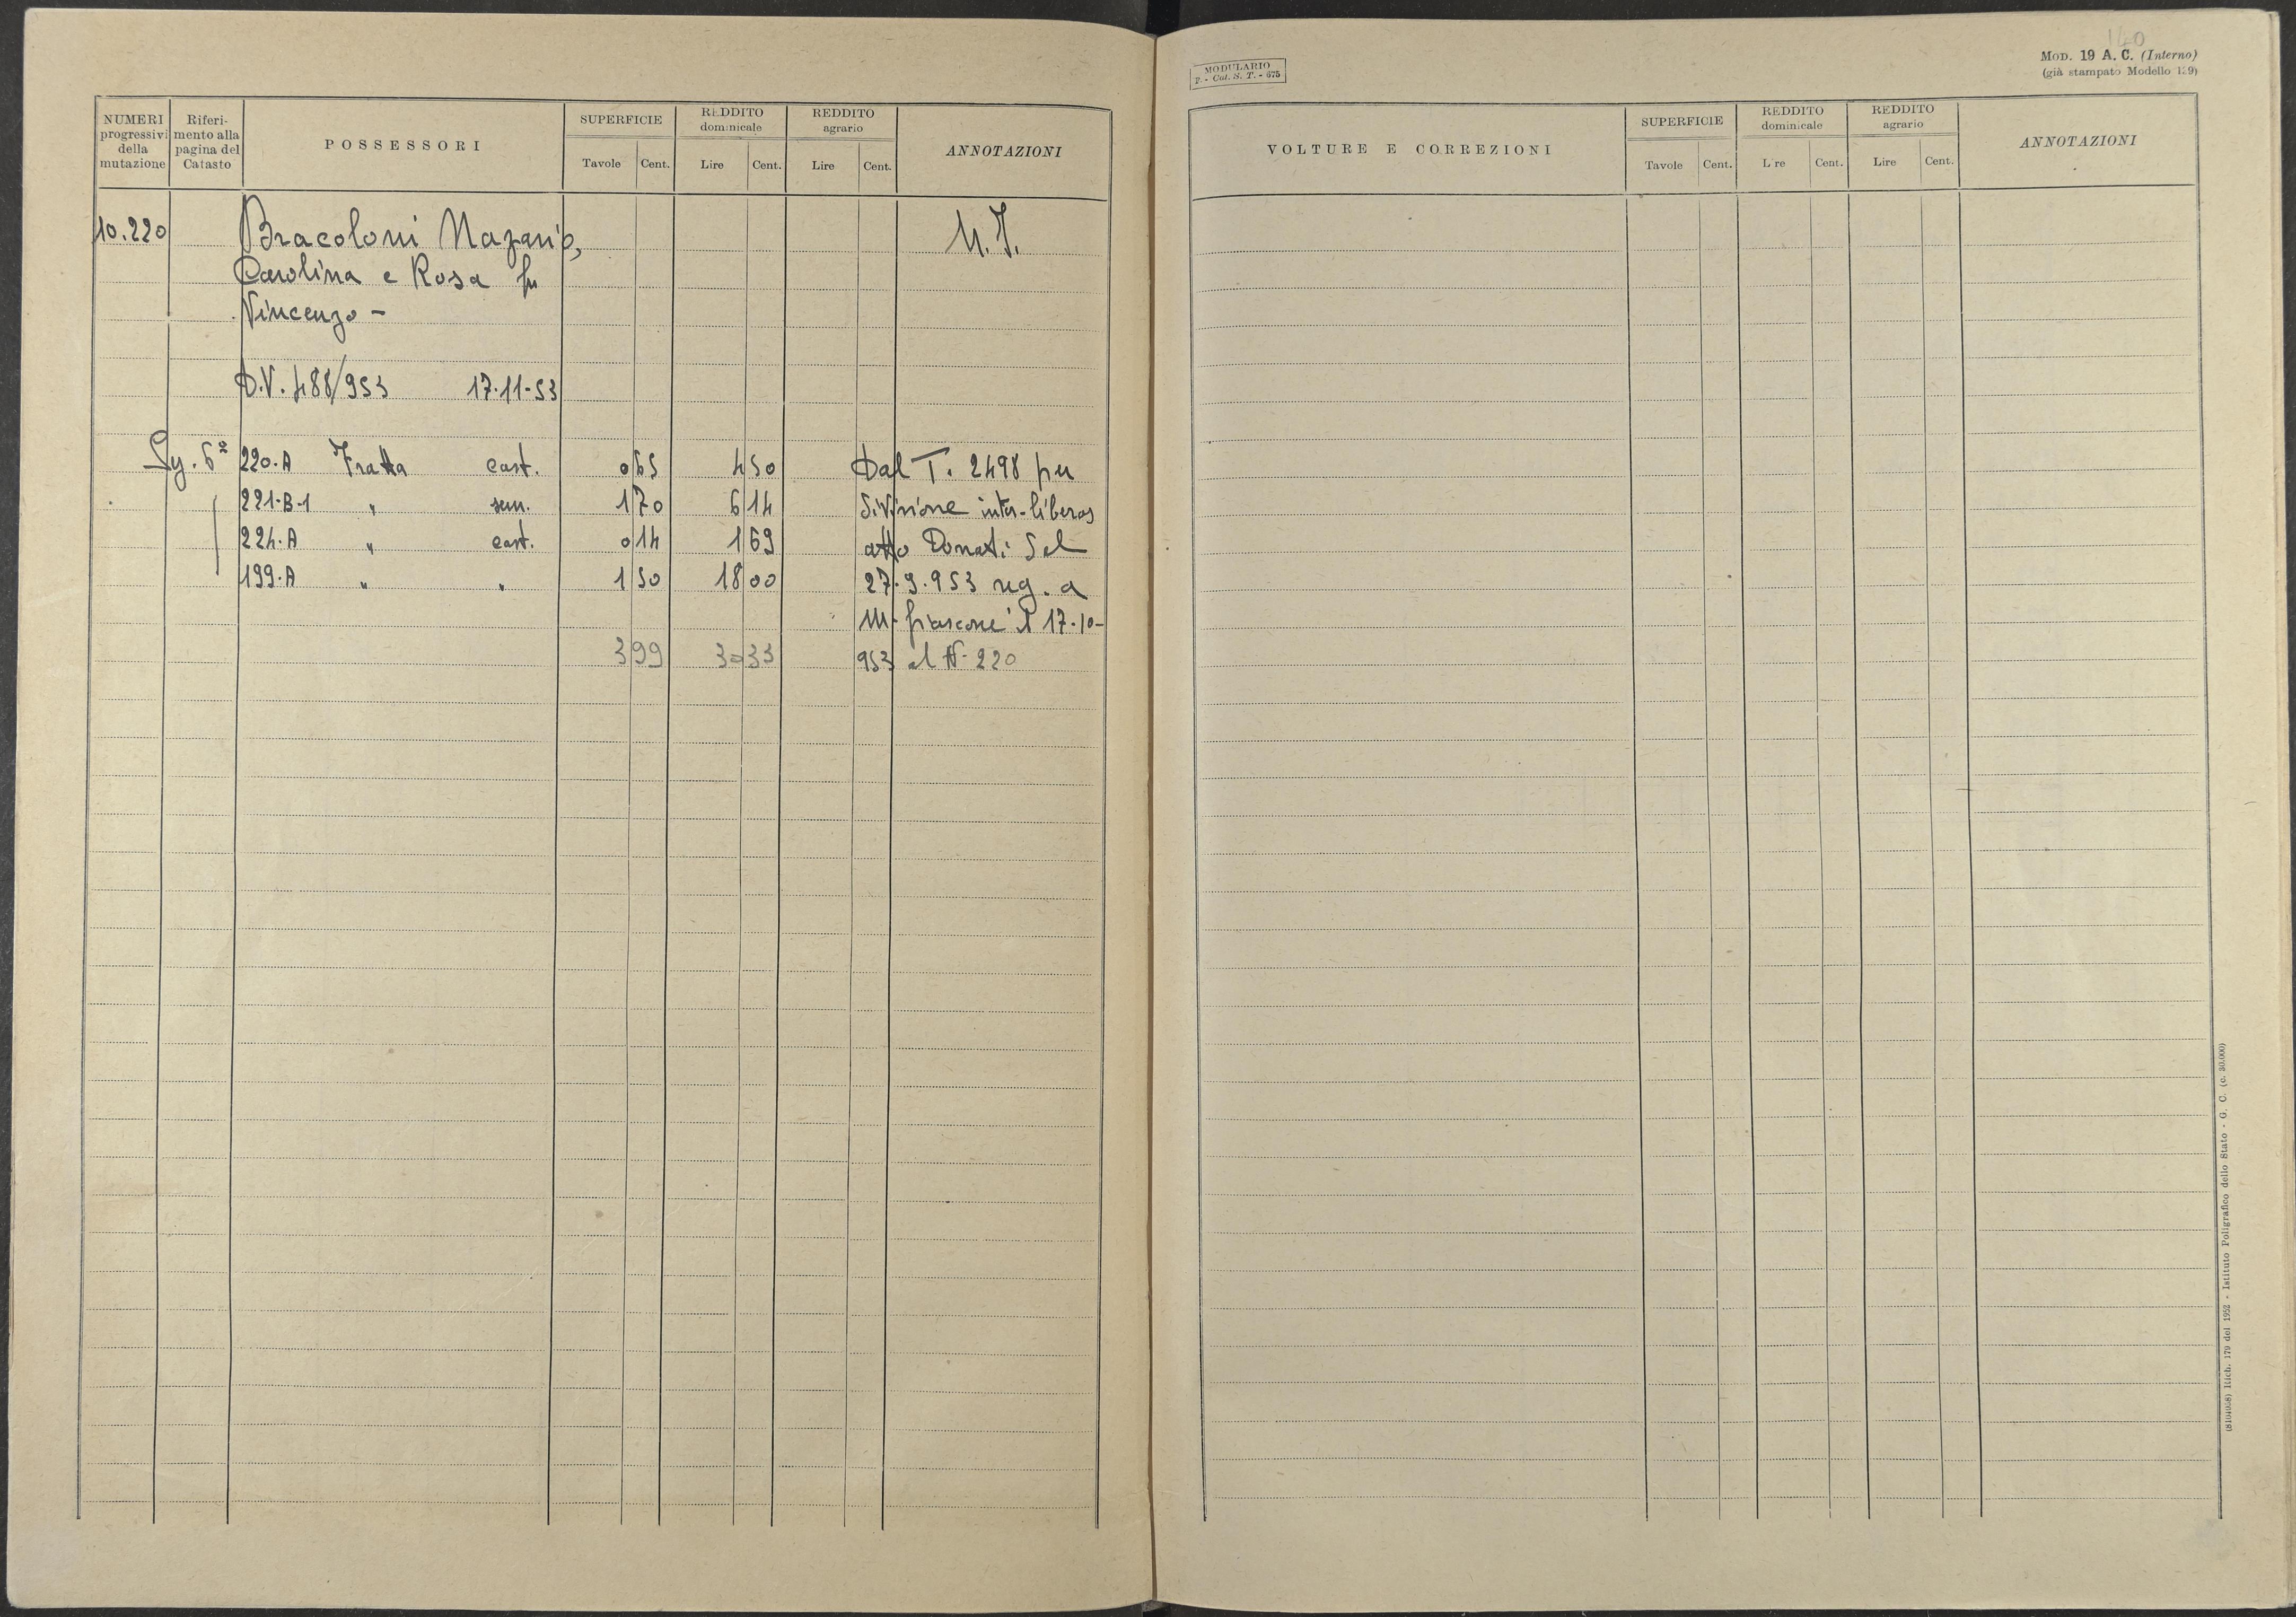 NUMERI progressivi della mutazione
Riferi- mento alla pagina del Catasto
POSSESSORI
SUPERFICIE
Tavole Cent.
REDDITO dominicale
Lire Cent.
REDDITO agrario
Lire Cent.
ANNOTAZIONI
10.220 Bracoloni Nazario,
Carolina e Rosa fu
Vincenzo -
D.V. 488/953 17-11-53
220-A Fratta cast. 0 65 4 50 Dal T. 2498 per
221-B-1 " sem. 1 70 6 14 divisione inter-liberos
224-A " cast. 0 14 1 69 atto Donati del
199-A " " 1 50 18 00 27.9.953 reg. a
M.fiascone il 17-10-
3 99 30 33 953 al N. 220
140
MODULARIO
F. - Cat. S. T. - 675
MOD. 19 A. C. (Interno)
(già stampato Modello 139)
VOLTURE E CORREZIONI
SUPERFICIE
Tavole Cent.
REDDITO dominicale
L re Cent.
REDDITO agrario
Lire Cent.
ANNOTAZIONI
Rich. 179 del 1952 - Istituto Poligrafico dello Stato - G. C. (c. 30.000)